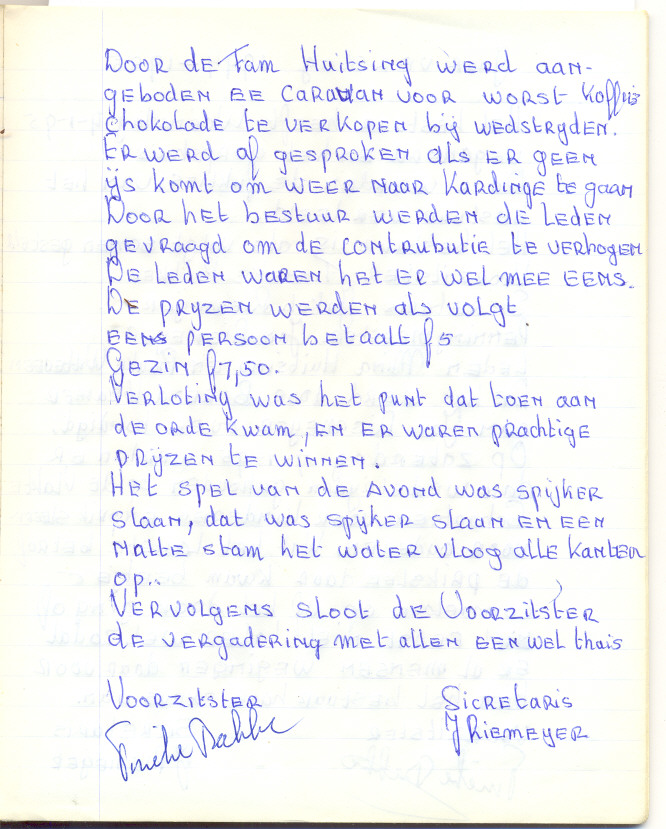 Door de Fam Huitsing werd aan-
geboden ee caravan voor worst Koffie
chokolade te verkopen bij wedstryden.
Er werd af gesproken als er geen
ijs komt om weer naar Kardinge te gaan
Door het bestuur werden de leden
gevraagd om de contrubutie te verhogen
De leden waren het er wel mee eens.
De pryzen werden als volgt
eens persoon betaalt f 5
Gezin f 7,50.
Verloting was het punt dat toen aan
de orde kwam, en er waren prachtige
prijzen te winnen.
Het spel van de Avond was spijker
slaan, dat was spijker slaan en een
natte stam het water vloog alle kanten
op..
Vervolgens sloot de Voorzitster
de vergadering met allen een wel thuis
Voorzitster Sicretaris
J Riemeyer